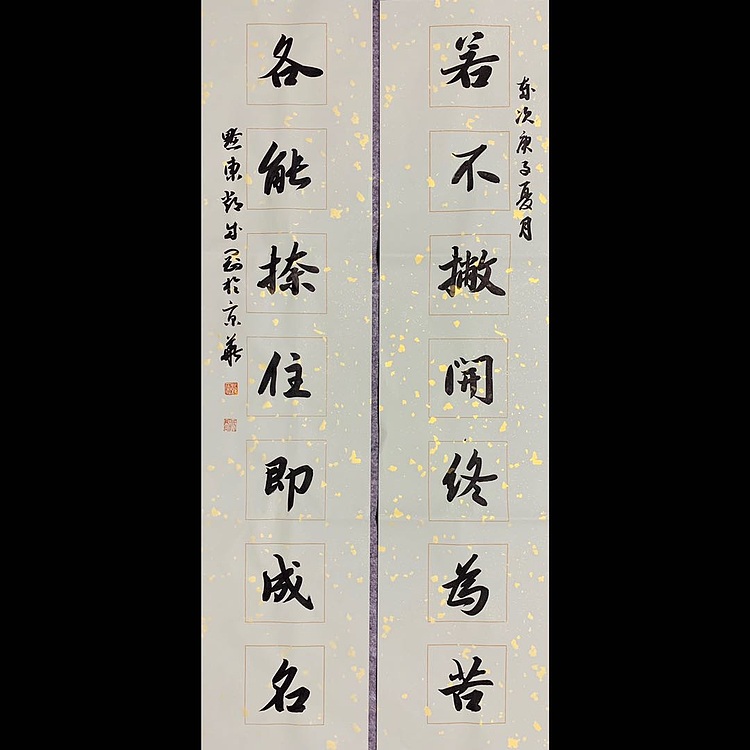 歲次庚子夏月
若不撇開終為苦
各能捺住即成名
黔東成剛於京華